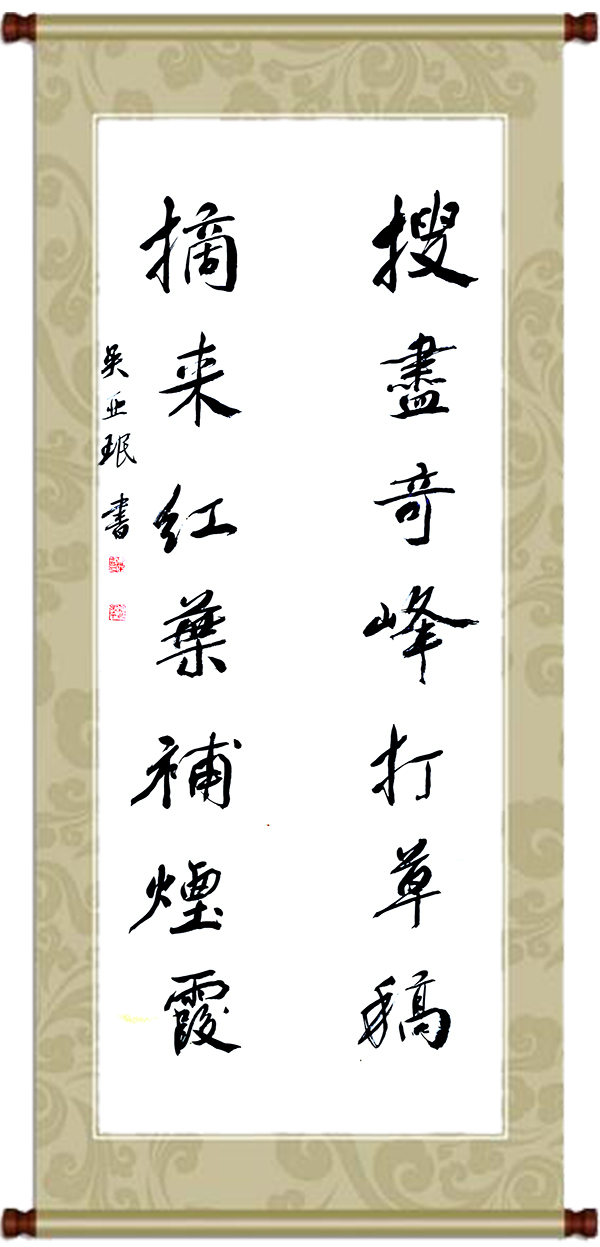 搜盡奇峰打草稿
摘来红葉補煙霞
吴亚珉書